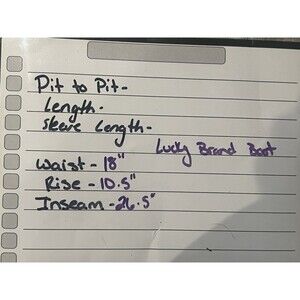 Pit to Pit-
Length-
Sleeve Length-
Lucky Brand Boot
Waist - 18"
Rise - 10.5"
Inseam - 26.5"